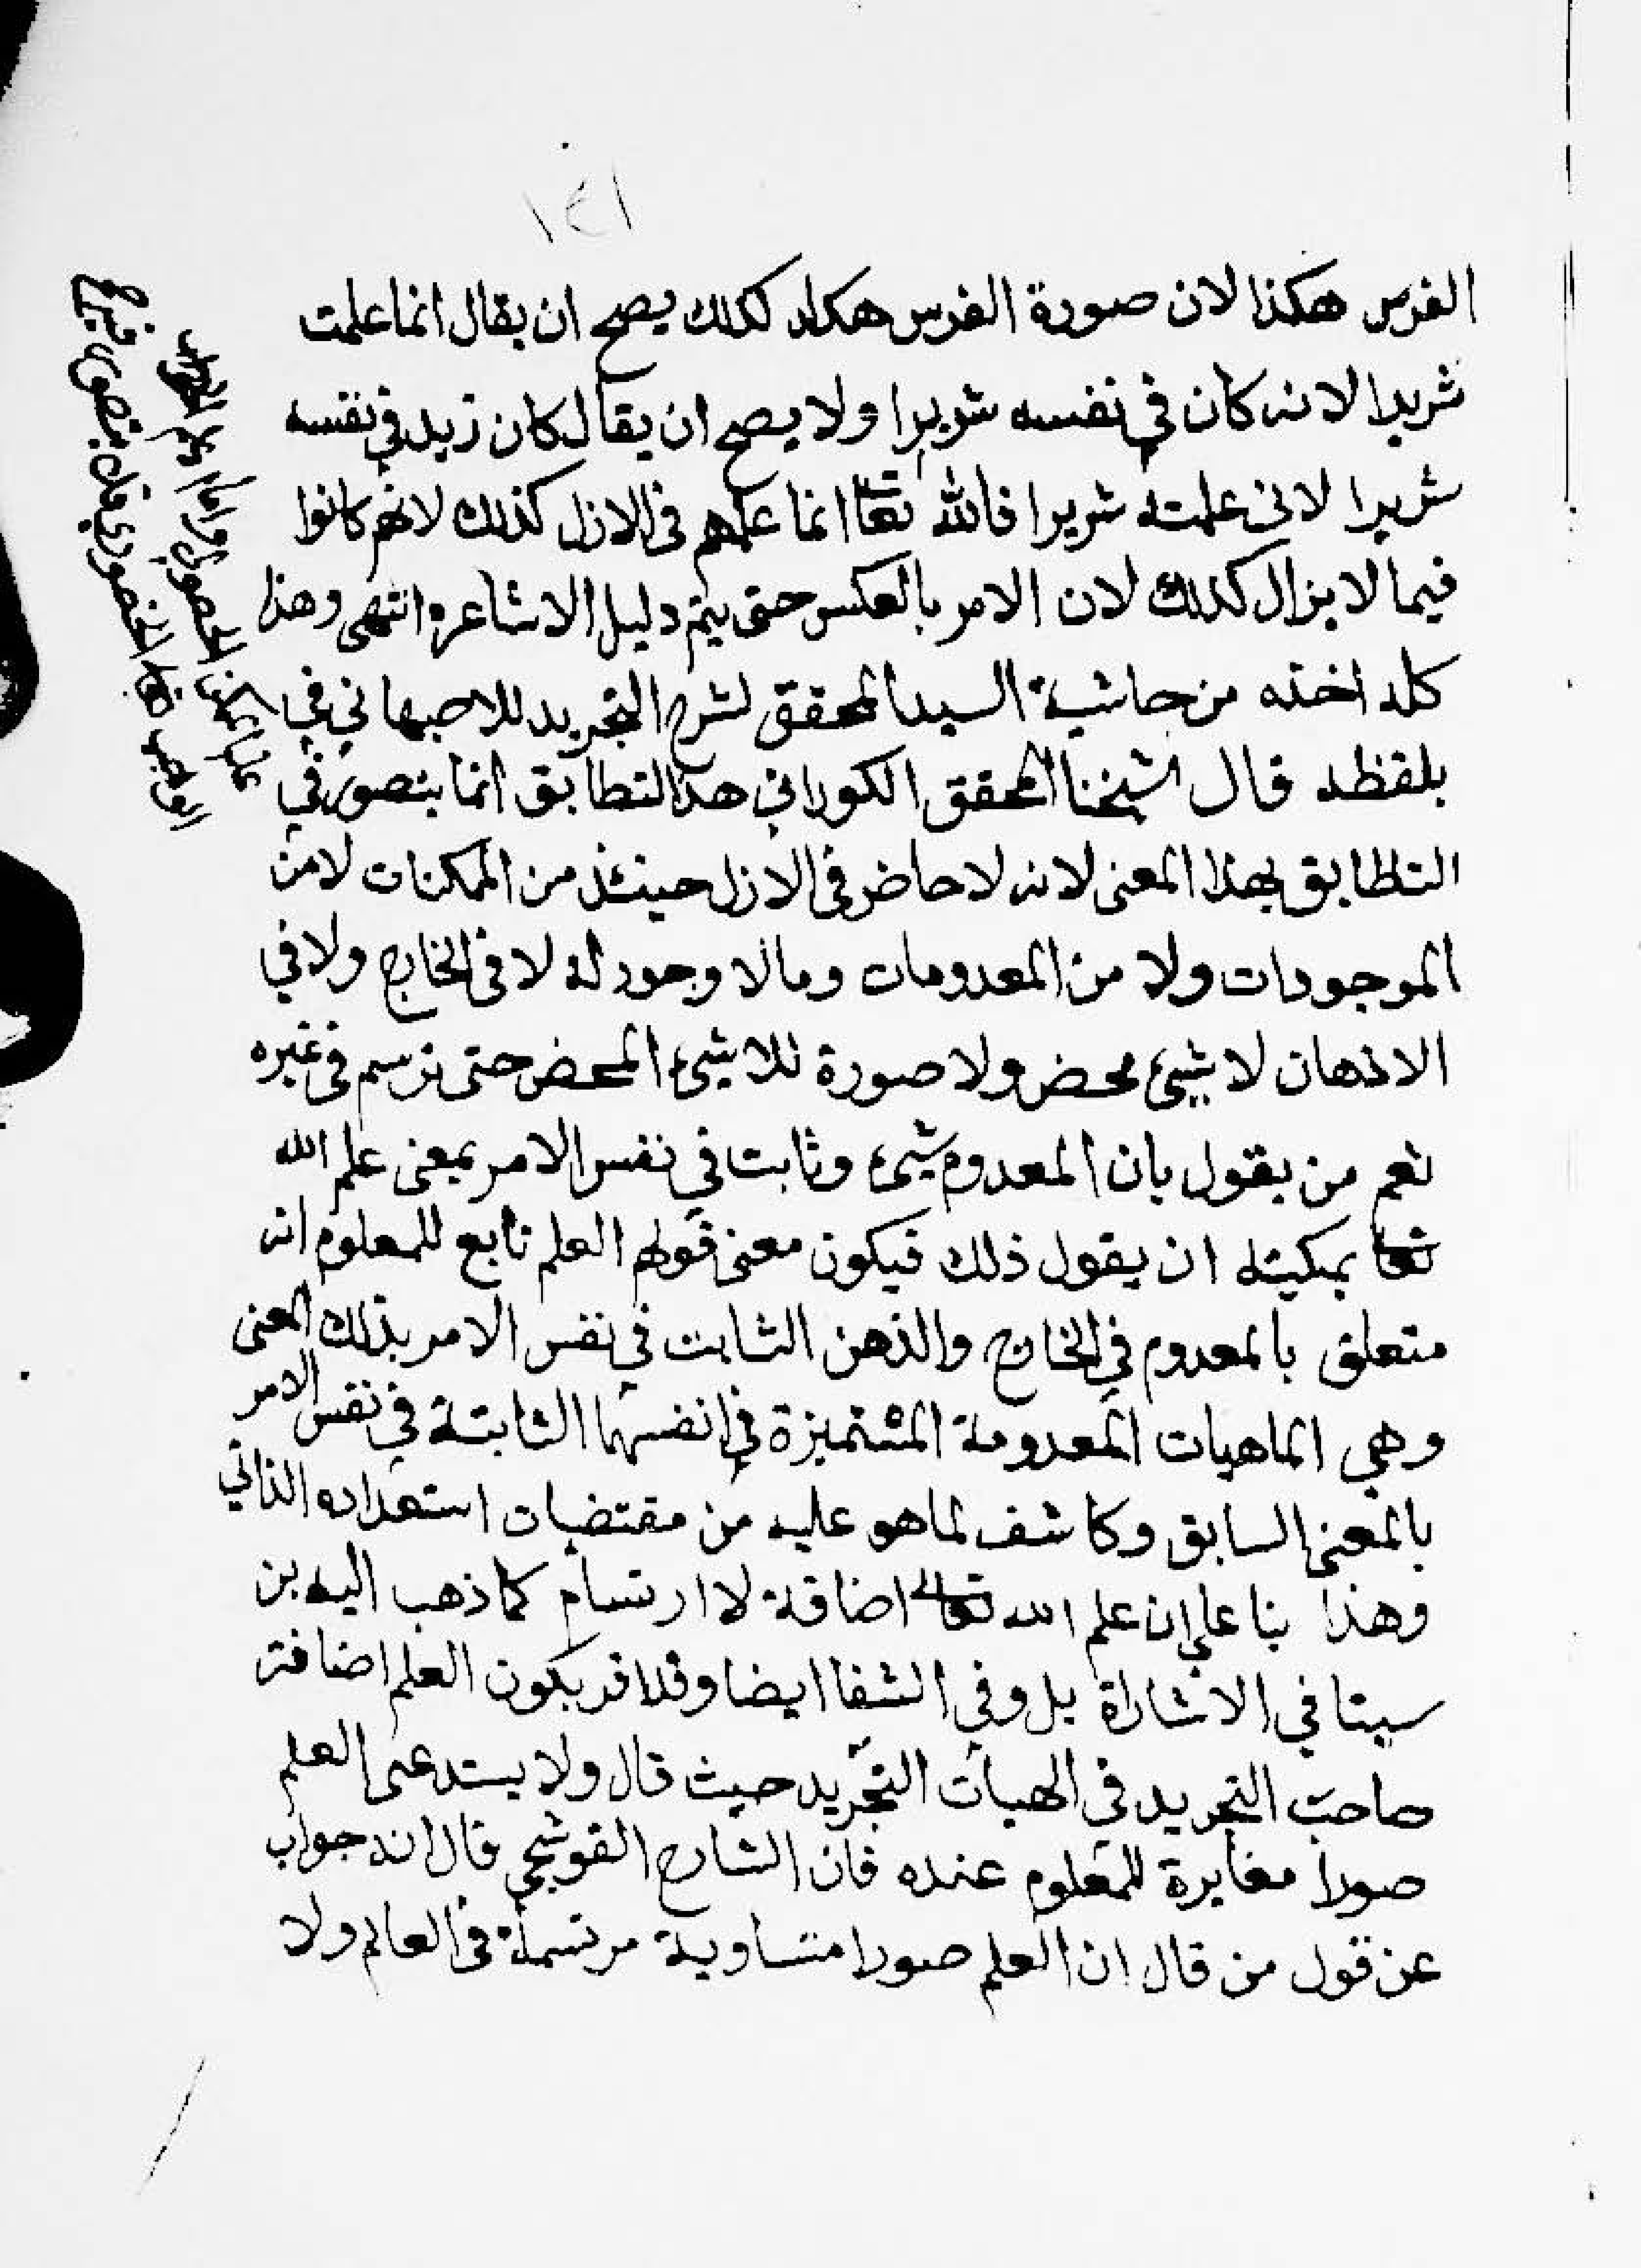 ١٤١
الفرس هكذا لان صورة الفرس هكذا كذلك يصح ان يقال انما علمت
شريرا لانه كان في نفسه شريرا ولا يصح ان يقال كان زيد في نفسه
شريرا لاني علمته شريرا فالله تعا انما علمهم في الازل كذلك لانهم كانوا
فيما لا يزال كذلك لان الامر بالعكس حتى يتم دليل الاشاعره انتهى وهذا
كله اخذه من حاشية السيد المحقق لشرح التجريد للاصبهاني في
بلفظه قال شيخنا المحقق الكوراني هذا التطابق انما يتصور في
التطابق بهذا المعنى لانه لا حاضر في الازل حينئذ من الممكنات لا من
الموجودات ولا من المعدومات وما لا وجود له لا في الخارج ولا في
الاذهان لا شيئ محض ولا صورة للاشيئ المحض حتى ترسم في غيره
نعم من يقول بان المعدوم شيئ وثابت في نفس الامر بمعنى علم الله
تعا يمكنه ان يقول ذلك فيكون معنى قولهم العلم تابع للمعلوم انه
متعلق بالمعدوم في الخارج والذهن الثابت في نفس الامر بذلك المعنى
وهي الماهيات المعدومة المتميزة في انفسها الثابتة في نفس الامر
بالمعنى السابق وكاشف لما هو عليه من مقتضيات استعداده الذاتي
وهذا بنا على ان علم الله تعالى اضافة لا ارتسام كما ذهب اليه بن
سينا في الاشاراة بل وفي الشفا ايضا وقد يكون العلم اضافة
صاحب التجريد في الهيأت التجريد حيث قال ولا يستدعى العلم
صورا مغايرة للمعلوم عنده فان الشارح القوشجي قال انه جواب
عن قول من قال ان العلم صورا متساوية مرتسمة في العالم ولا